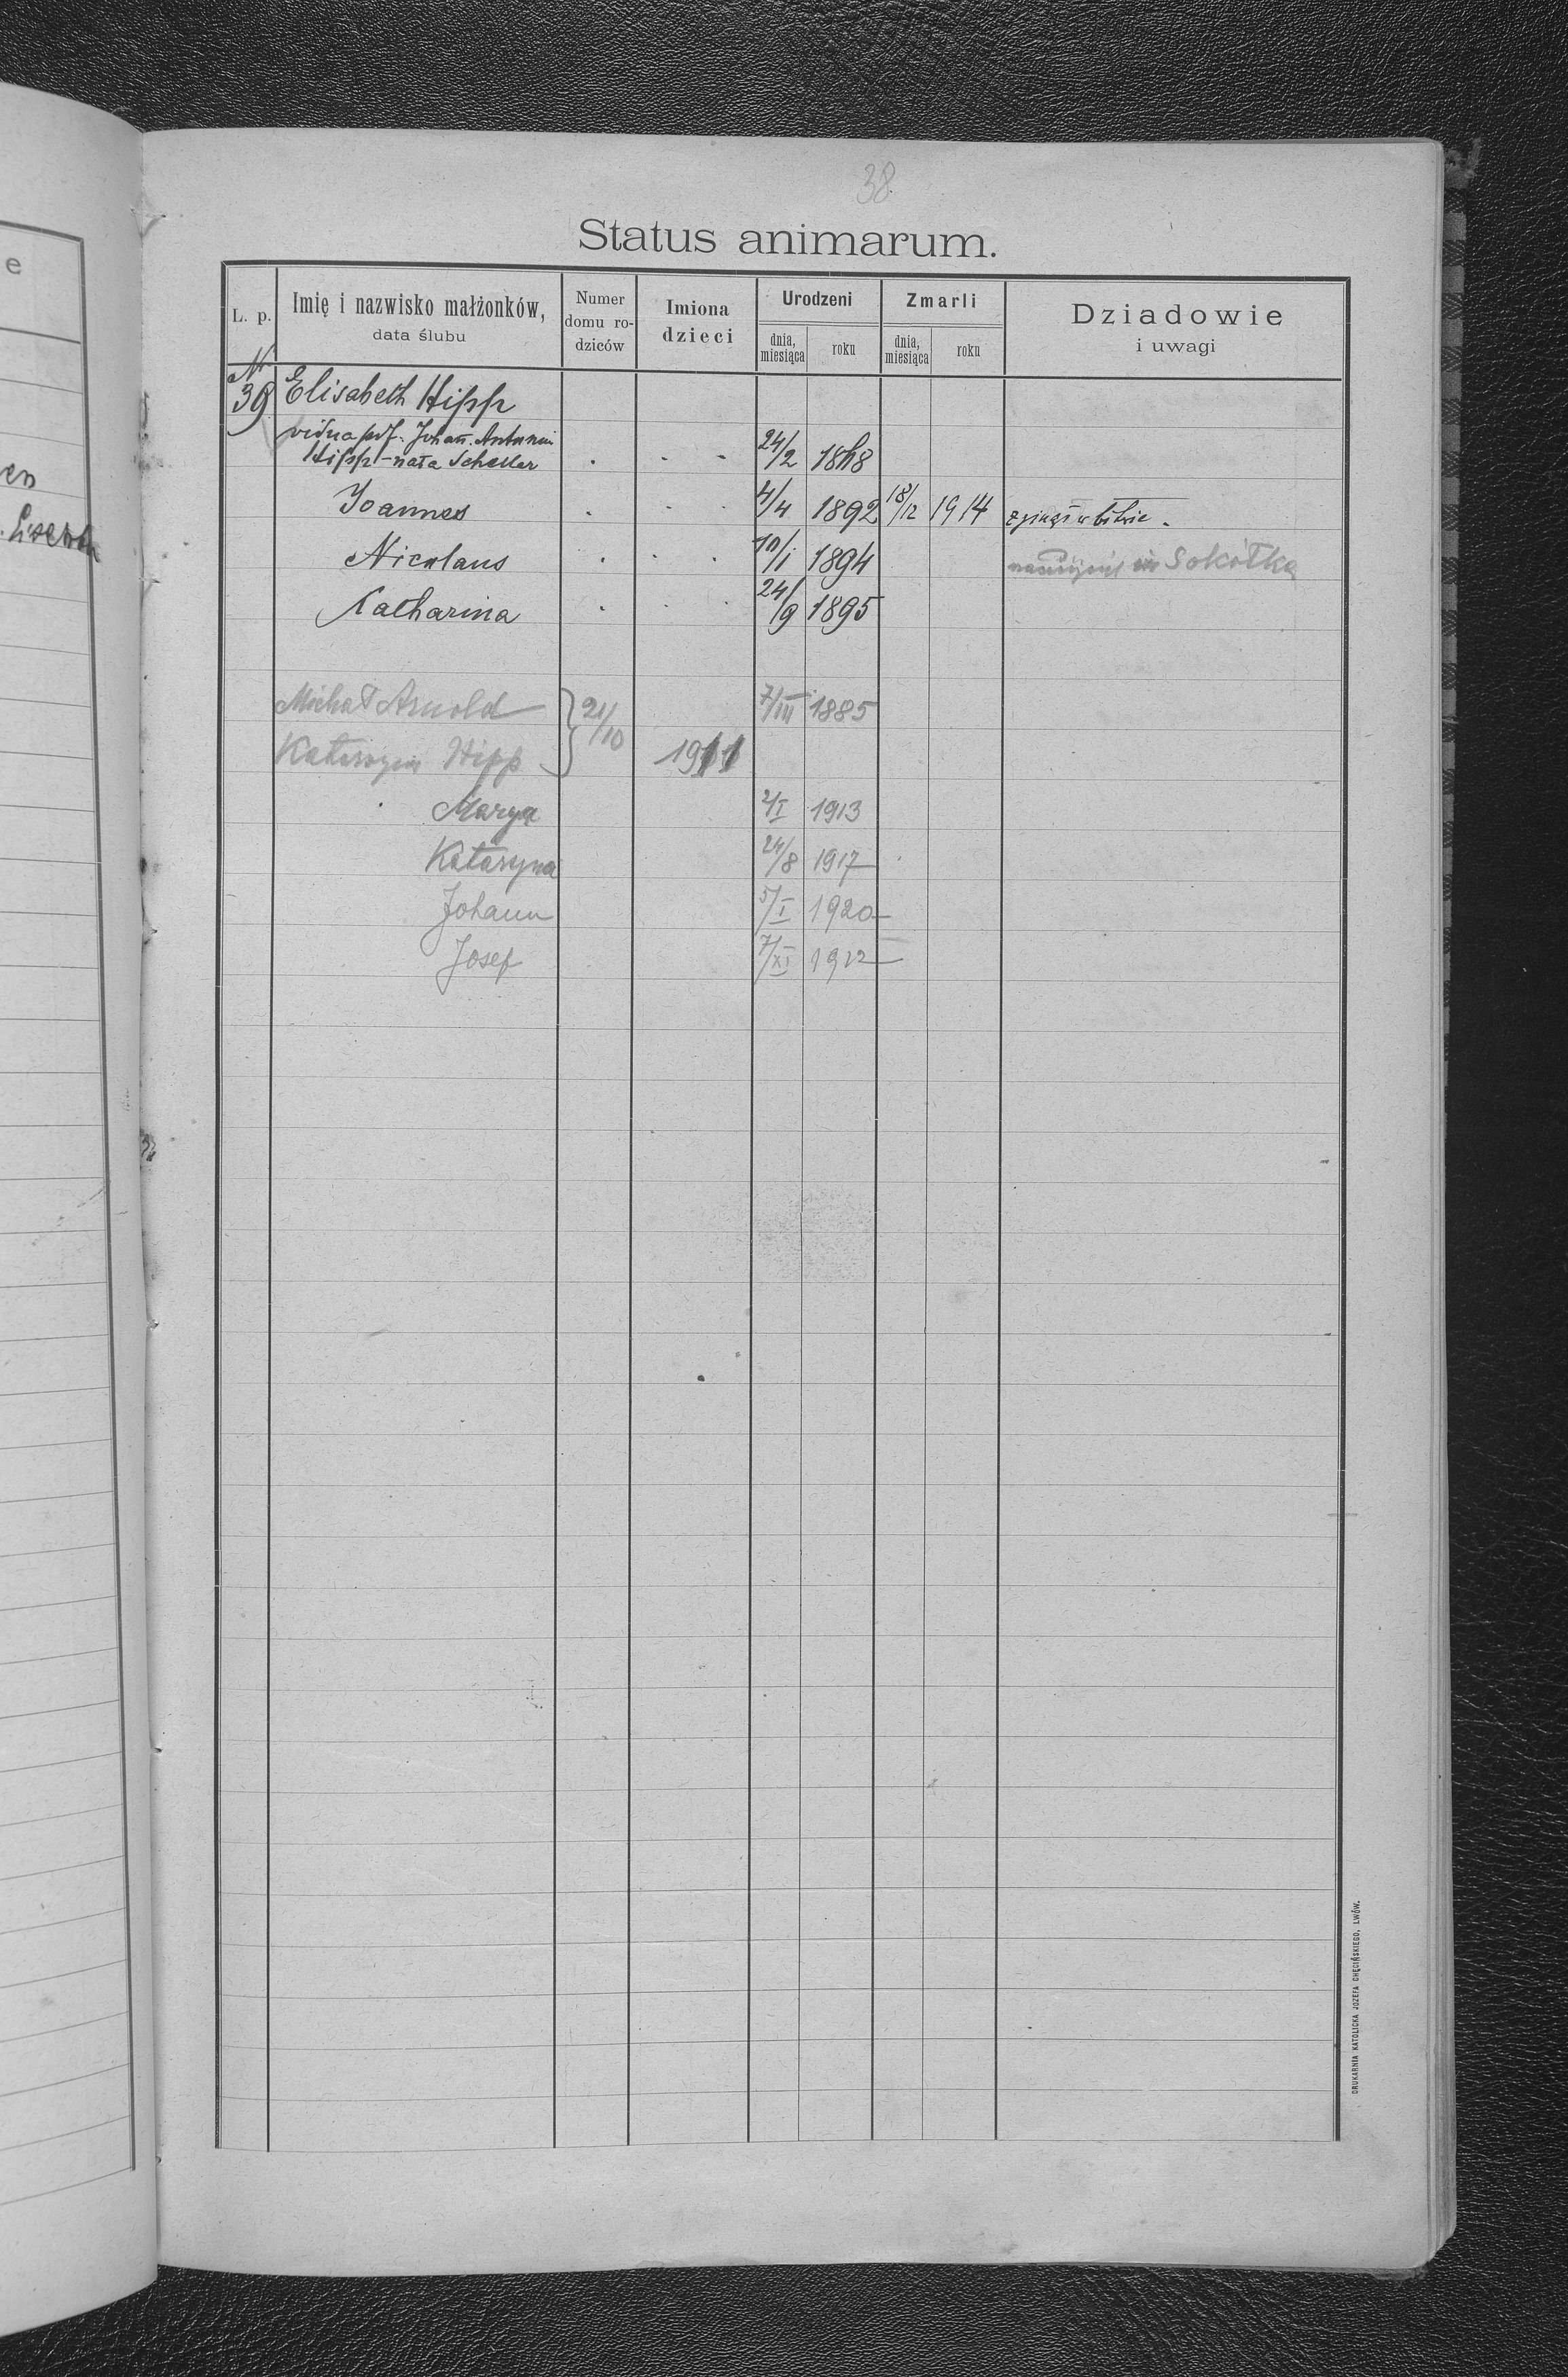 38
Status animarum.
L. p.
Imię i nazwisko małżonków,
data ślubu
Numer
domu ro-
dziców
Imiona
dzieci
Urodzeni
dnia,
miesiąca
roku
Zmarli
dnia,
miesiąca
roku
Dziadowie
i uwagi
Nr
39 Elisabeth Hipp
vidua Johan. Antonii
Hipp - nata Scheller 24/2 1868
Joannes 4/4 1892 18/12 1914 zginął w bitwie.
Nicolaus 10/1 1894 Sokółka
Katharina 24/9 1895
Michał Arnold } 21/10 7/III 1885
Katarzyna Hipp 1911
Marya 2/I 1913
Kataryna 24/8 1917
Johann 5/I 1920
Josef 7/XI 1922
DRUKARNIA KATOLICKA JÓZEFA CHĘCIŃSKIEGO, LWÓW.
e